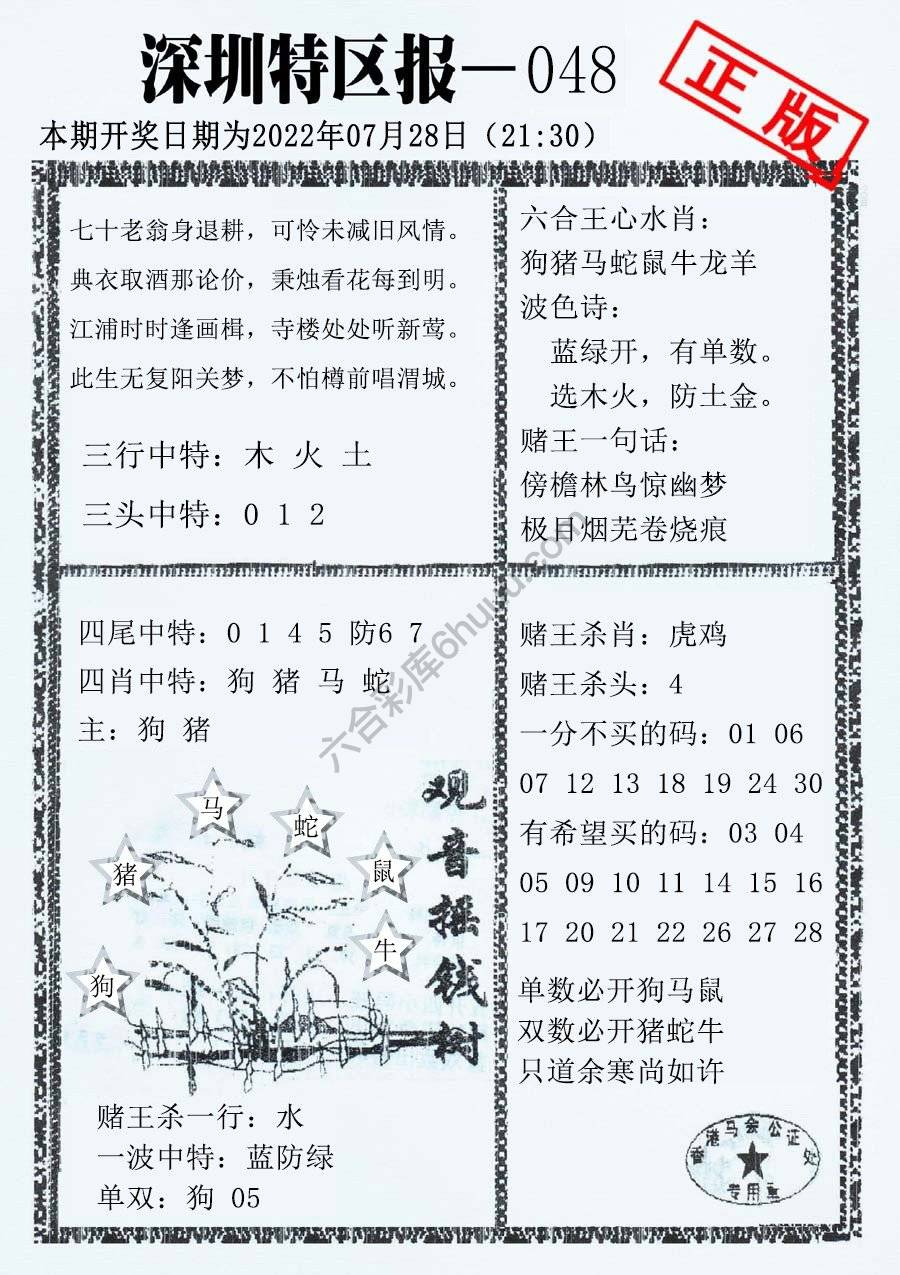 深圳特区报—048
正版
本期开奖日期为2022年07月28日（21:30）
七十老翁身退耕，可怜未减旧风情。
典衣取酒那论价，秉烛看花每到明。
江浦时时逢画楫，寺楼处处听新莺。
此生无复阳关梦，不怕樽前唱渭城。
三行中特：木 火 土
三头中特：0 1 2
六合王心水肖：
狗猪马蛇鼠牛龙羊
波色诗：
蓝绿开，有单数。
选木火，防土金。
赌王一句话：
傍檐林鸟惊幽梦
极目烟芜卷烧痕
四尾中特：0 1 4 5 防6 7
四肖中特：狗 猪 马 蛇
主：狗 猪
马
蛇
猪
鼠
牛
狗
观音摇钱树
赌王杀一行：水
一波中特：蓝防绿
单双：狗 05
赌王杀肖：虎鸡
赌王杀头：4
一分不买的码：01 06
07 12 13 18 19 24 30
有希望买的码：03 04
05 09 10 11 14 15 16
17 20 21 22 26 27 28
单数必开狗马鼠
双数必开猪蛇牛
只道余寒尚如许
香港马会公证处
专用章
六合彩库6huuu.com